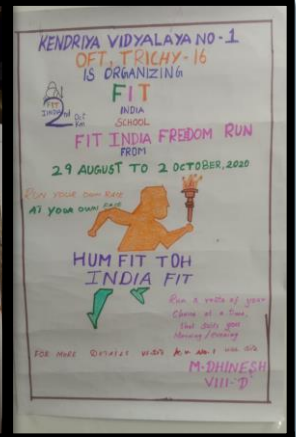 KENDRIYA VIDYALAYA NO-1
OFT, TRICHY-16
IS ORGANIZING
FIT
INDIA
SCHOOL
FIT INDIA
2nd
Oct
Run
FIT INDIA FREEDOM RUN
FROM
29 AUGUST TO 2 OCTOBER, 2020
RUN YOUR OWN RACE
AT YOUR OWN PACE
HUM FIT TOH
INDIA FIT
Run a route of your
Choice at a time,
That suits you
Morning/Evening
FOR MORE DETAILS VISIT K.V NO.1
M.DHINESH
VIII-'D'